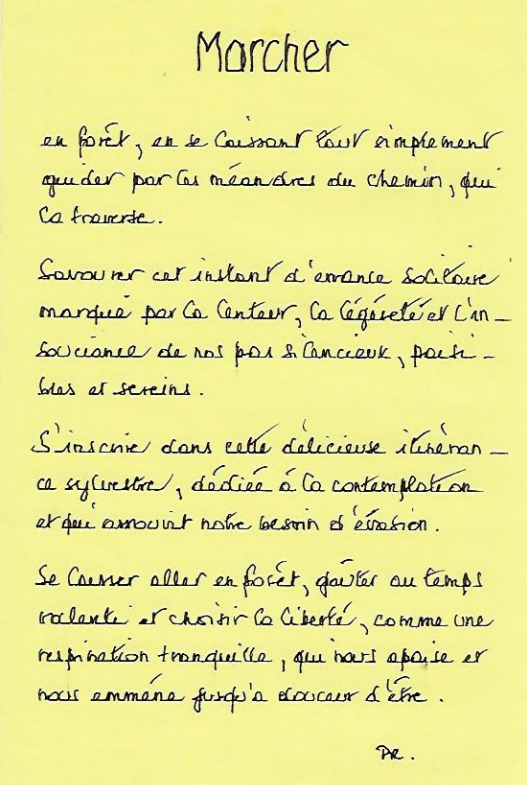 Marcher
en forêt, en se laissant tout simplement
guider par les méandres du chemin, qui
la traverse.
Savourer cet instant d'errance solitaire
marqué par la lenteur, la légèreté et l'in-
souciance de nos pas silencieux, paisi-
bles et sereins.
S'inscrire dans cette délicieuse itinéran-
ce sylvestre, dédiée à la contemplation
et qui assouvit notre besoin d'évasion.
Se laisser aller en forêt, goûter au temps
ralenti et choisir la liberté, comme une
respiration tranquille, qui nous apaise et
nous emmène jusqu'a douceur d'être.
PR.